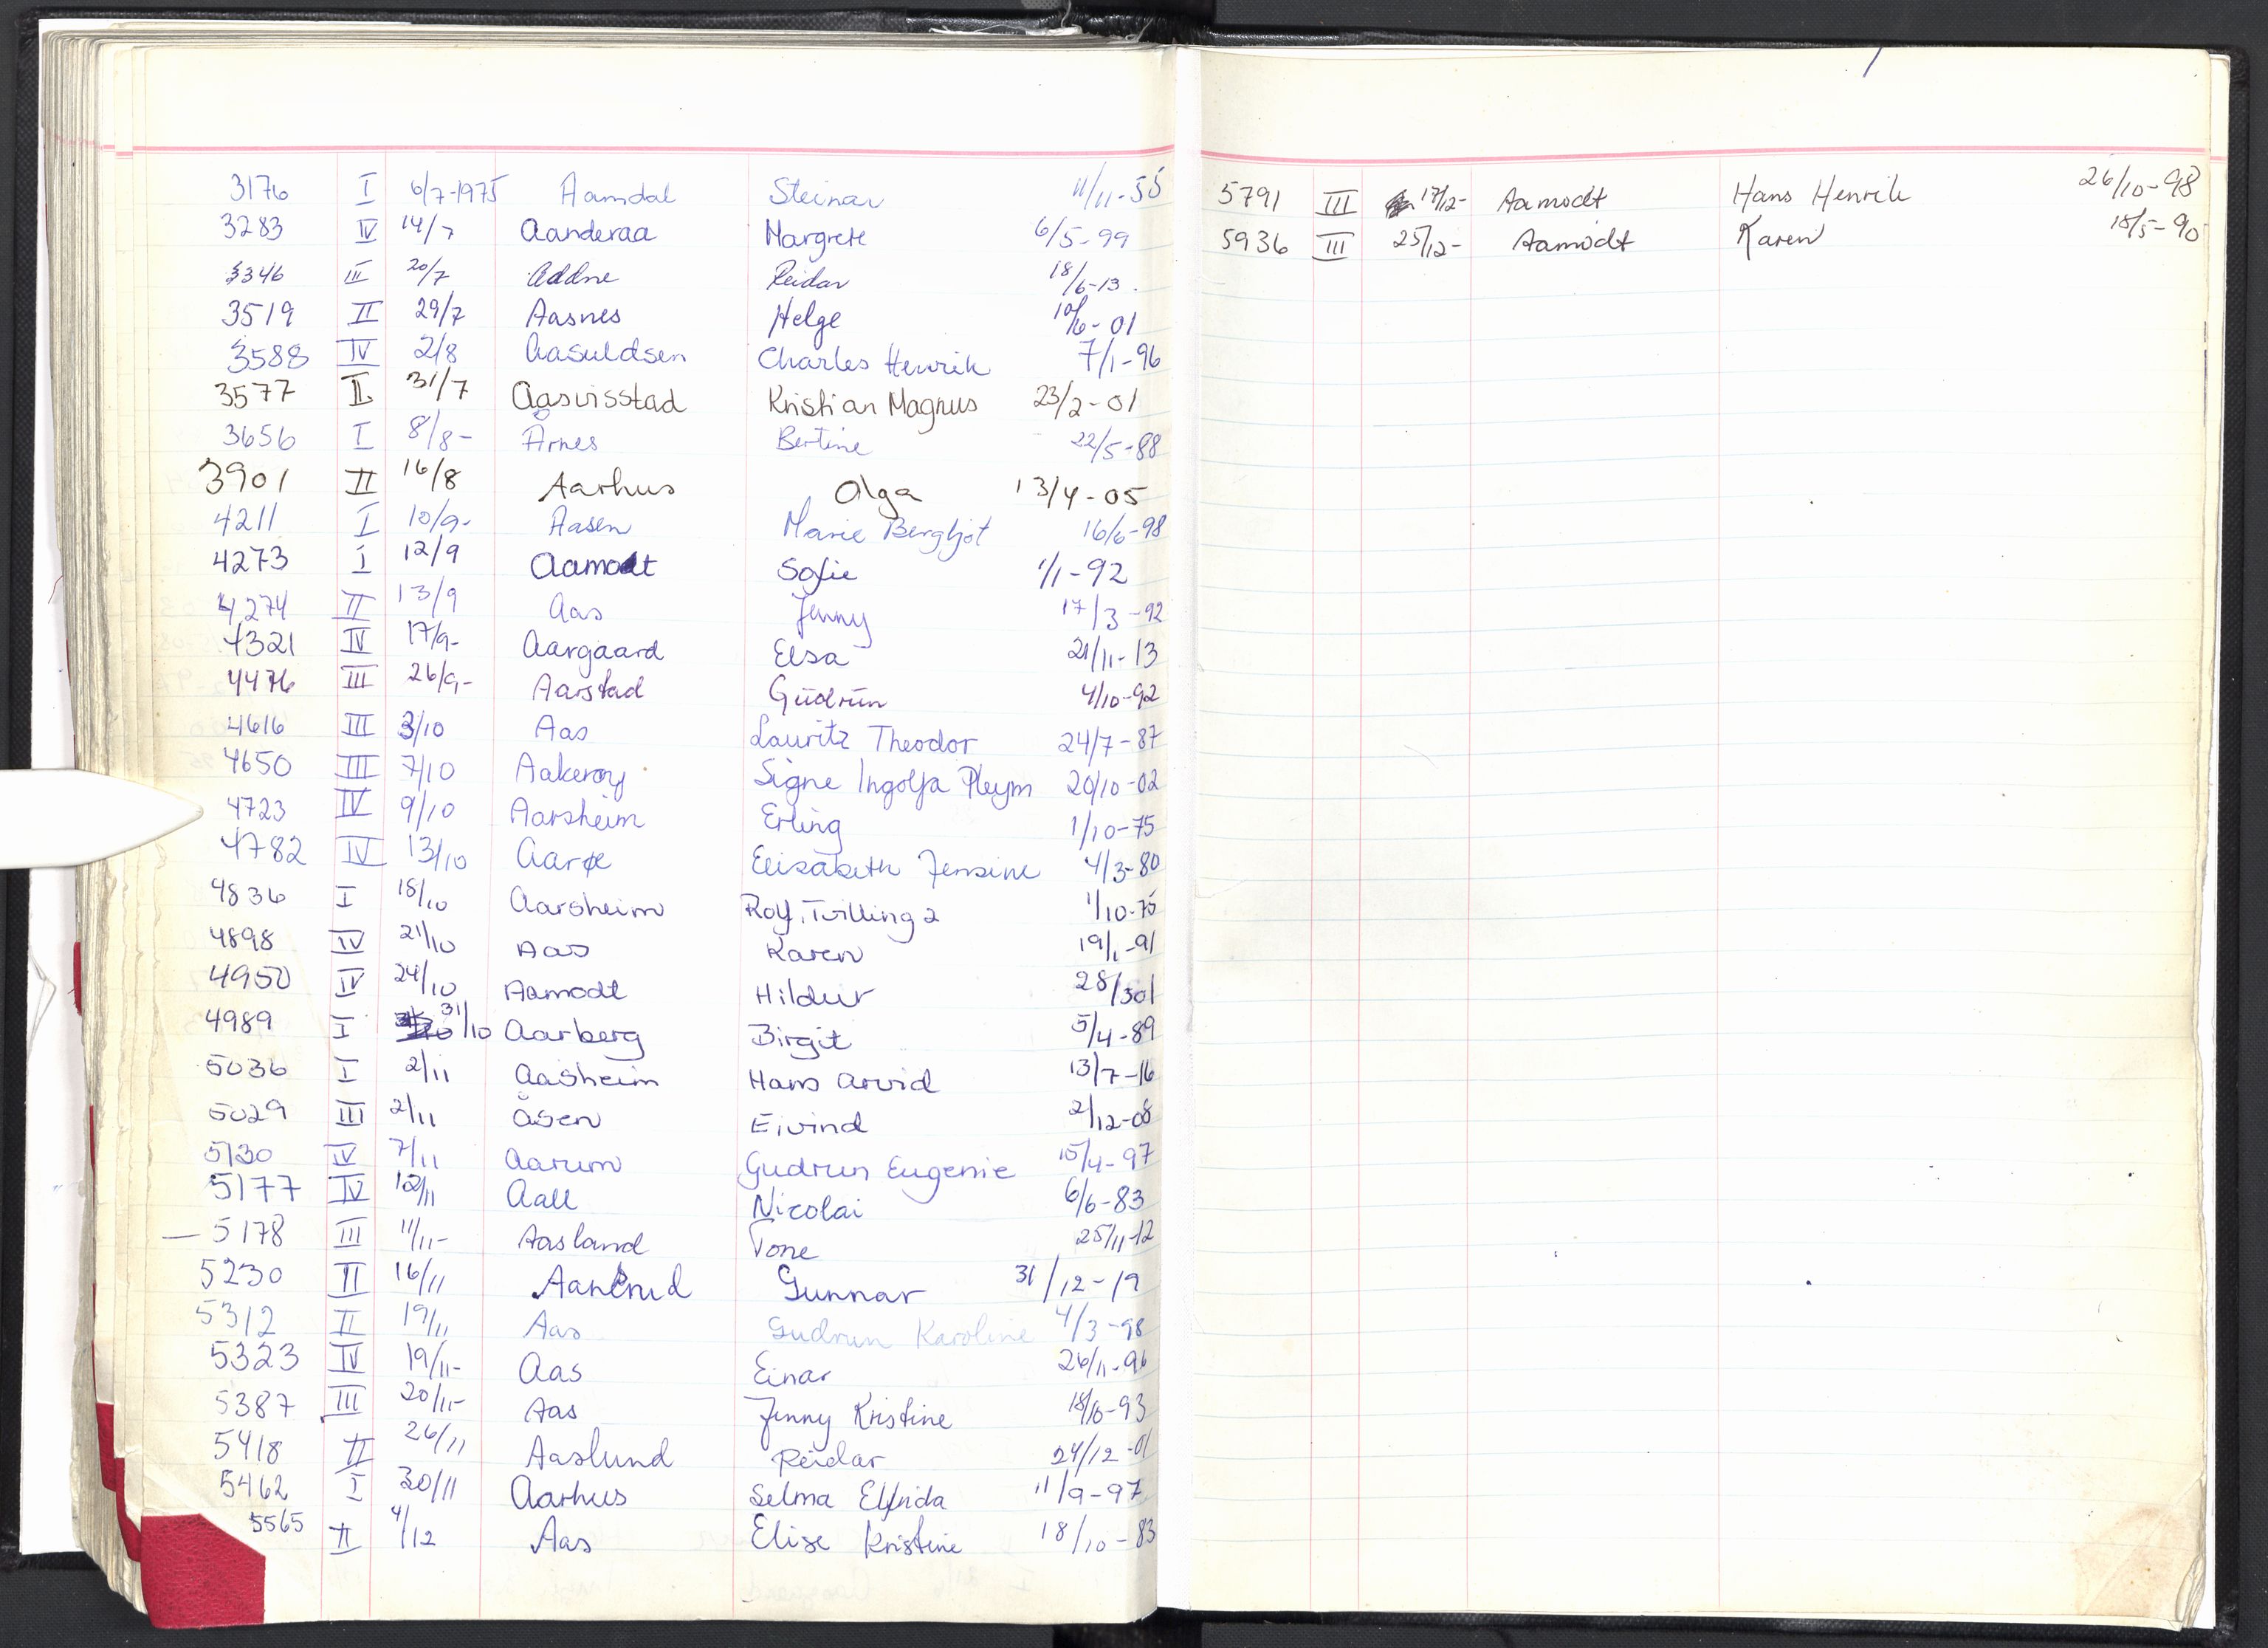 3176 I 6/7-1975 Aamdal Steinar 11/11-55
3283 IV 14/7 Aanderaa Margrete 6/5-99
3346 III 20/7 Addne Reidar 18/6-13.
3519 II 29/7 Aasnes Helge 10/6-01
3588 IV 2/8 Aasuldsen Charles Henrik 7/1-96
3577 II 31/7 Aasvisstad Kristian Magnus 23/2-01
3656 I 8/8- Årnes Bertine 22/5-88
3901 II 16/8 Aarhus Olga 13/4-05
4211 I 10/9- Aasen Marie Bergljot 16/6-98
4273 I 12/9 Aamodt Sofie 1/1-92
4274 II 13/9 Aas Jenny 17/3-92
4321 IV 17/9- Aargaard Elsa 21/11-13
4476 III 26/9- Aarstad Gudrun 4/10-92
4616 III 3/10 Aas Lauritz Theodor 24/7-87
4650 III 7/10 Aakerøy Signe Ingolfa Pleym 20/10-02
4723 IV 9/10 Aarsheim Erling 1/10-75
4782 IV 13/10 Aarøe Elisabeth Jensine 4/3-80
4836 I 18/10 Aarsheim Rolf, Tvilling 2 1/10-75
4898 IV 21/10 Aas Karen 19/1-91
4950 IV 24/10 Aamodt Hildur 28/301
4989 I 31/10 Aarberg Birgit 5/4-89
5036 I 2/11 Aasheim Hans Arvid 13/7-16
5029 III 2/11 Åsen Eivind 2/12-08
5130 IV 7/11 Aarum Gudrun Eugenie 15/4-97
5177 IV 12/11 Aall Nicolai 6/6-83
— 5178 III 11/11- Aasland Tone 25/11-12
5230 II 16/11 Gunnar 31/12-19
5312 II 19/11 Aas Gudrun Karoline 4/3-98
5323 IV 19/11- Aas Einar 26/11-96
5387 III 20/11- Aas Jenny Kristine 18/6-93
5418 II 26/11 Aaslund Reidar 24/12-01
5462 I 30/11 Aarhus Selma Elfrida 11/9-97
5565 II 4/12 Aas Elise Kristine 18/10-83
5791 III 17/12- Aamodt Hans Henrik 26/10-98
5936 III 25/12- Aamodt Karen 18/5-90